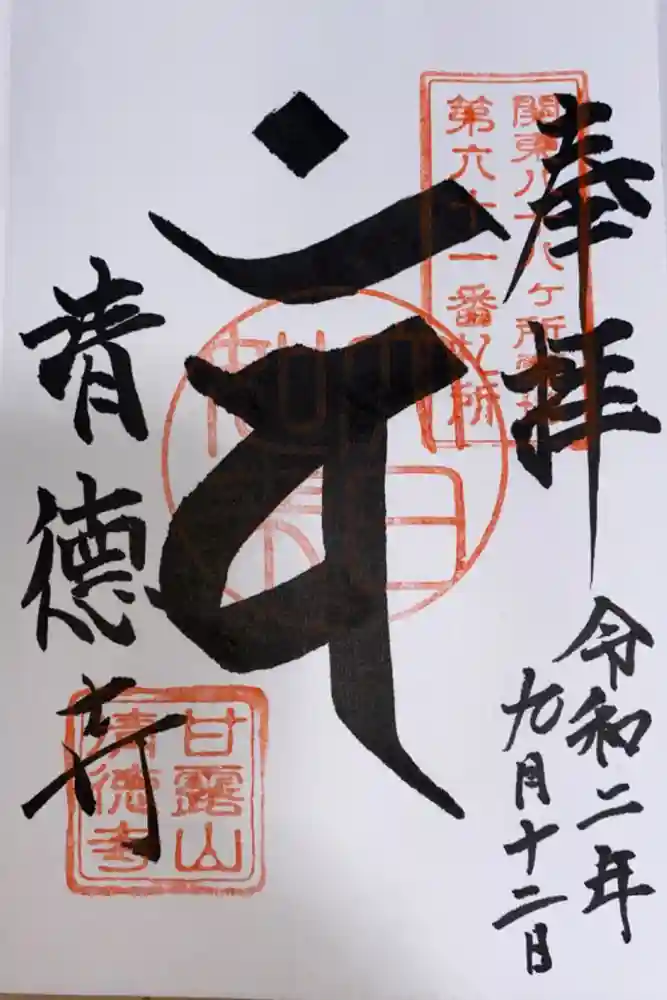 関東八十八ヶ所霊場
第六十一番札所
奉拝
令和二年
九月十二日
大日
如来
清徳寺
甘露山
清徳寺